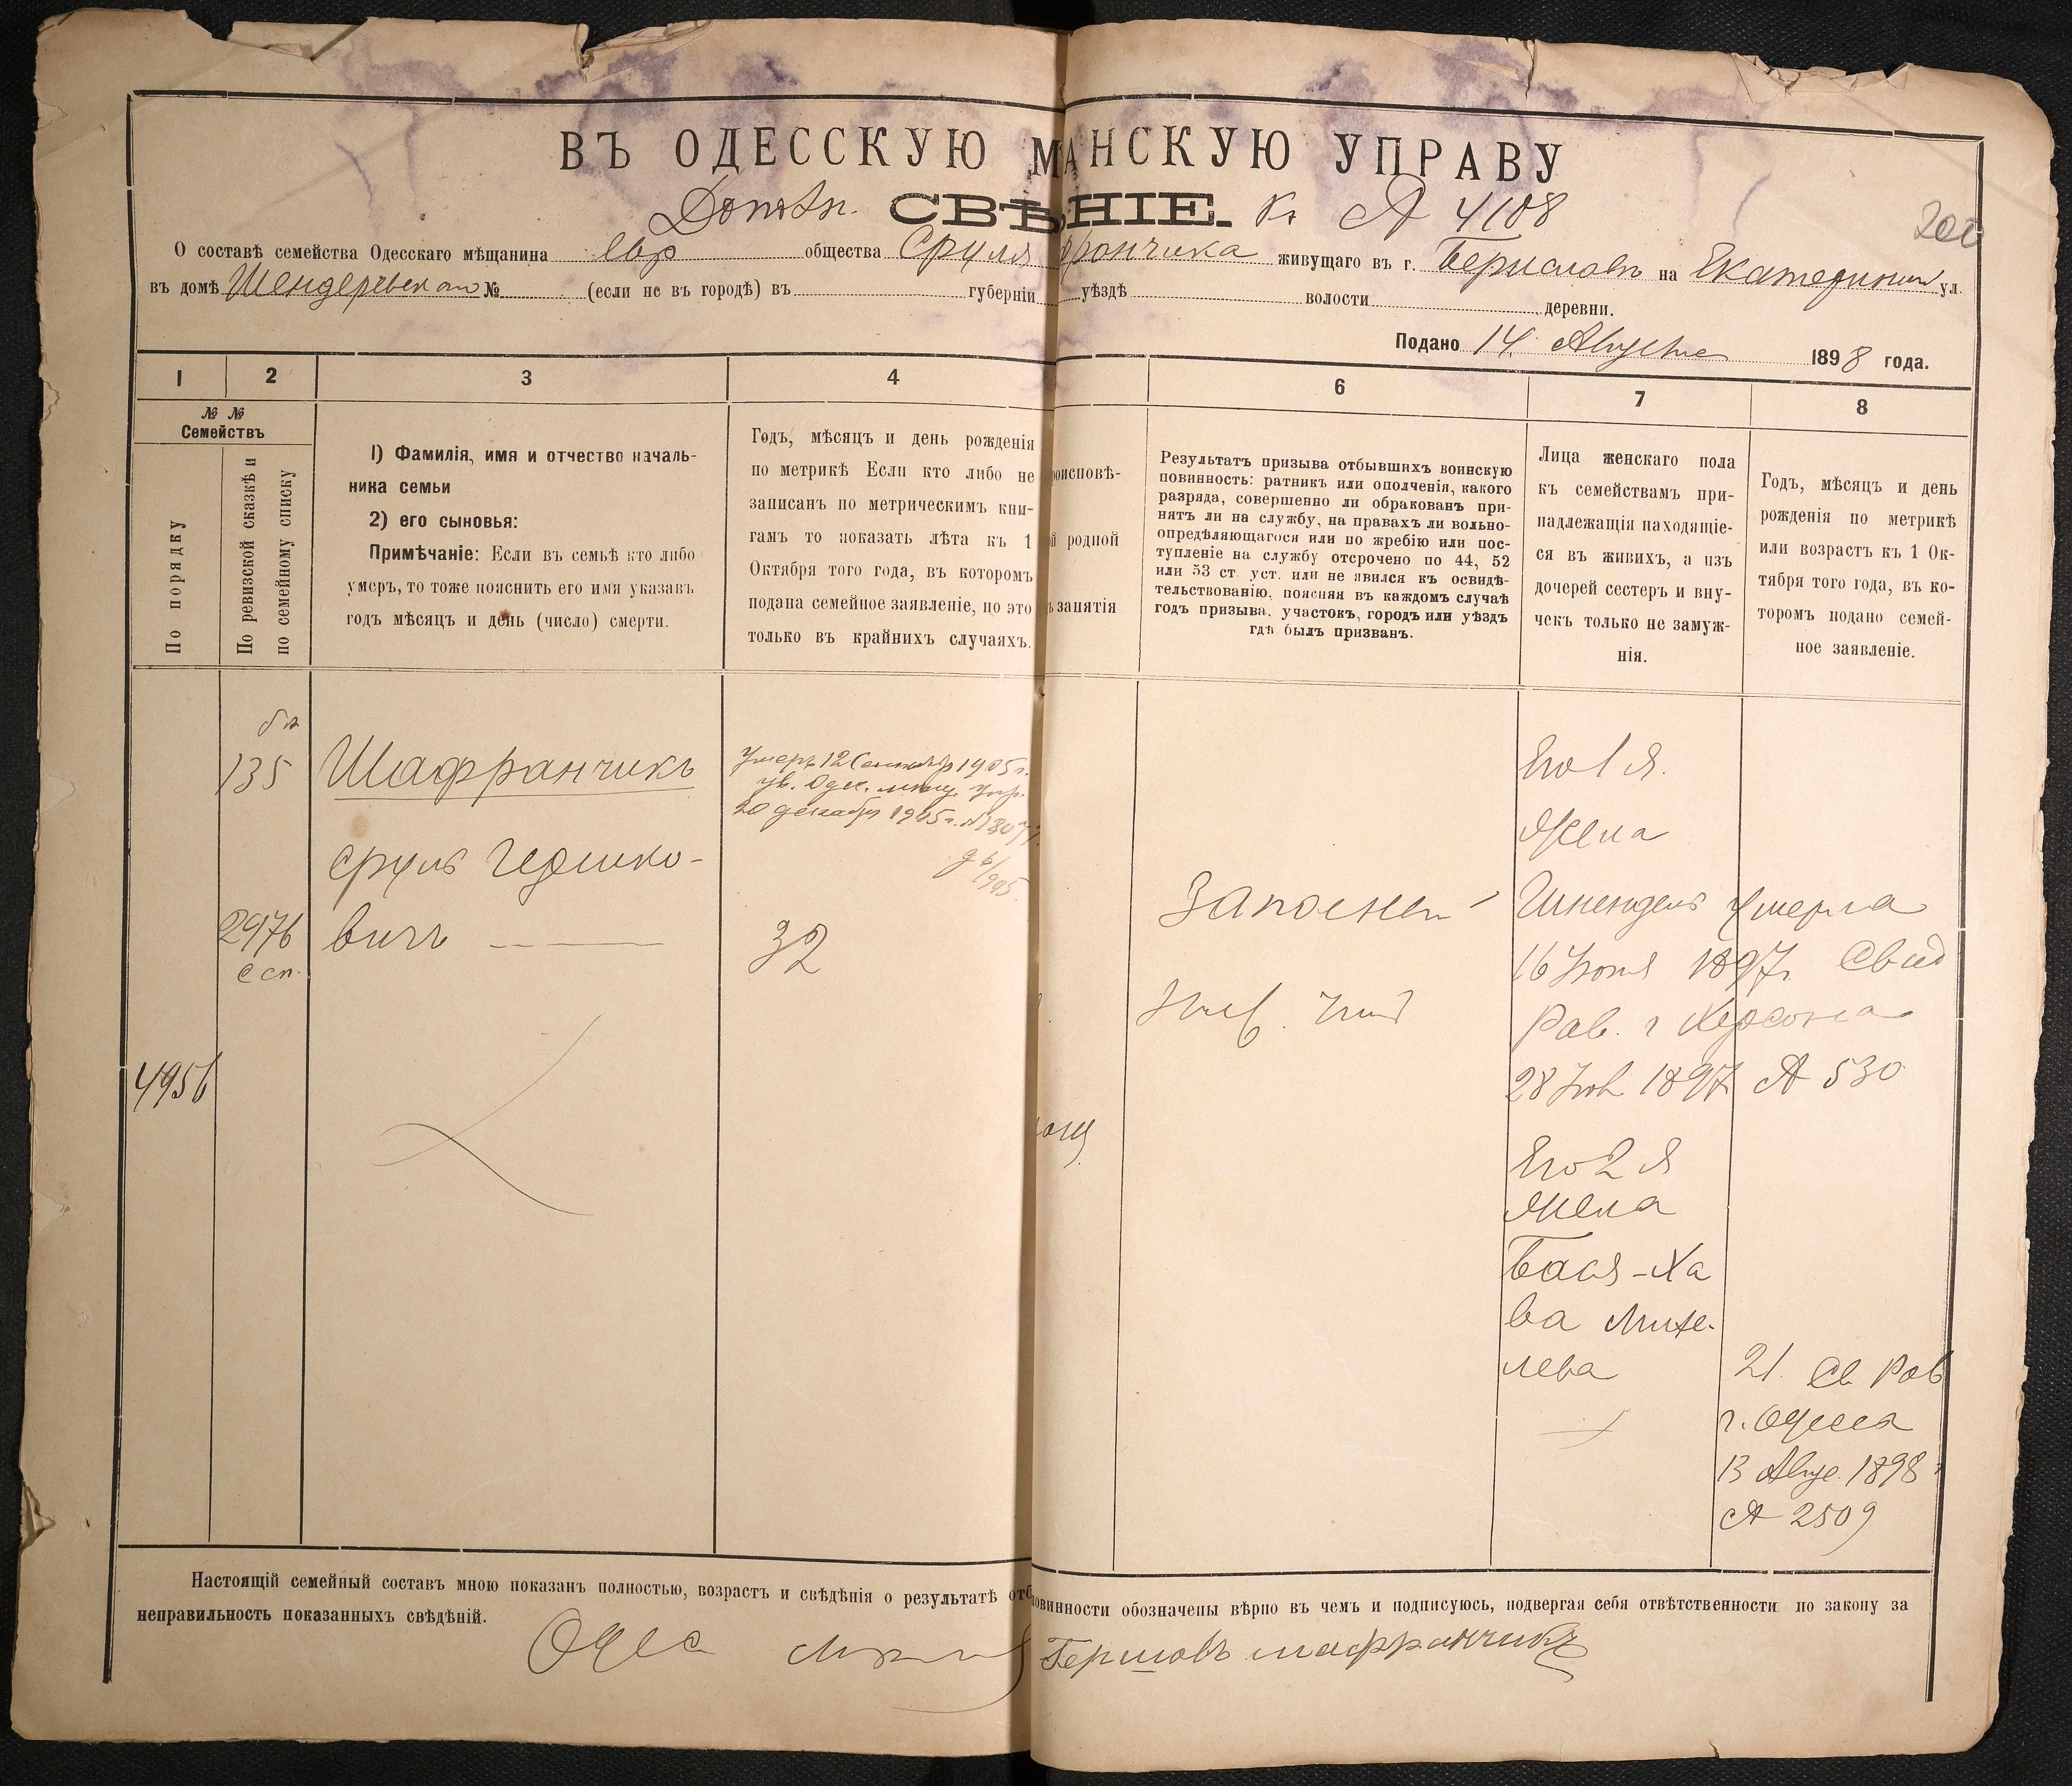 ВЪ ОДЕССКУЮ МАНСКУЮ УПРАВУ
СВѢНІЕ. А 4108
200
О составѣ семейства Одесскаго мѣщанина евр общества Сруля фрончика живущаго въ г. Бериславъ на Екатеринин ул.
въ домѣ № (если не въ городѣ) въ губерніи уѣздѣ волости деревни.
Подано 14 Августа 1898 года.
1 2 3 4 6 7 8
№ №
Семействъ
По порядку
По ревизской сказкѣ и
по семейному списку
1) Фамилія, имя и отчество началь-
ника семьи
2) его сыновья:
Примѣчаніе: Если въ семьѣ кто либо
умеръ, то тоже пояснить его имя указавъ
годъ мѣсяцъ и день (число) смерти.
Годъ, мѣсяцъ и день рожденія
по метрикѣ Если кто либо не
записанъ по метрическимъ кни-
гамъ то показать лѣта къ 1
Октября того года, въ которомъ
подана семейное заявленіе, но это
только въ крайнихъ случаяхъ.
роисповѣ-
й родной
ъ занятія
Результатъ призыва отбывшихъ воинскую
повинность: ратникъ или ополченія, какого
разряда, совершенно ли обракованъ при-
нятъ ли на службу, на правахъ ли вольно-
опредѣляющагося или по жребію или пос-
тупленіе на службу отсрочено по 44, 52
или 53 ст уст. или не явился къ освидѣ-
тельствованію, поясняя въ каждомъ случаѣ
годъ призыва. участокъ, городъ или уѣздъ
гдѣ былъ призванъ.
Лица женскаго пола
къ семействамъ при-
надлежащія находящіе-
ся въ живихъ, а изъ
дочерей сестеръ и вну-
чекъ только не замуж-
нія.
Годъ, мѣсяцъ и день
рожденія по метрикѣ
или возрастъ къ 1 Ок-
тября того года, въ ко-
торомъ подано семей-
ное заявленіе.
135
Шафранчикъ
Умеръ 12 Сентябр 1905 г.
ув. Одес. мѣщ. Упр.
20 декабря 1905 г. №
Сруль Гедшко-
2976
вичъ
с сп.
32
4956
Запасной
Его 1 я
жена
умерла
16 Іюня 1897 г. Свид
Рав. г Херсона
28 Іюн 1897 А 530
Его 2 я
жена
Бася-Ха
ва Михе-
лева
21. Св Рав
г. Одесса
13 Авгус. 1898 г
А 2509
Настоящій семейный составъ мною показанъ полностью, возрастъ и свѣдѣнія о результатѣ отб овинности обозначены вѣрно въ чемъ и подписуюсь, подвергая себя отвѣтственности по закону за
неправильность показанныхъ свѣдѣній.
Гершовъ шафранчикъ